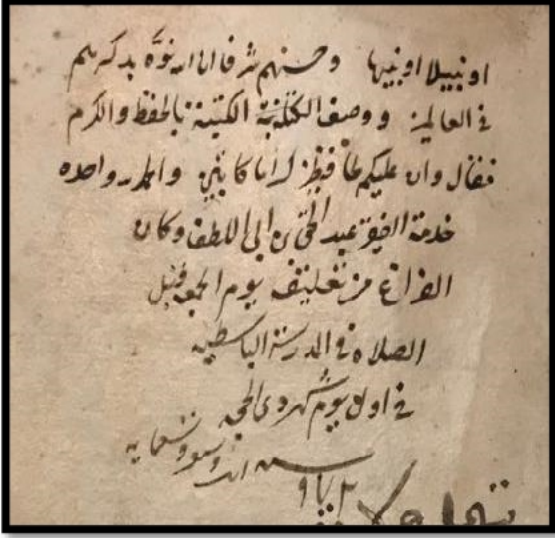 او نبيلا او نبيها وحسبهم شرفا ان الله نوه بذكرهم
في العالمين ووصف الكتبة بالحفظ والكرم
فقال وان عليكم لحافظين كراما كاتبين والحمد لله وحده
خدمة الفقير عبد الحق بن ابي اللطف وكان
الفراغ من تعليقه يوم الجمعة قبل
الصلاه في المدرسة الباسطيه
في اول يوم شهر ذي الحجه
سنه وتسعمايه